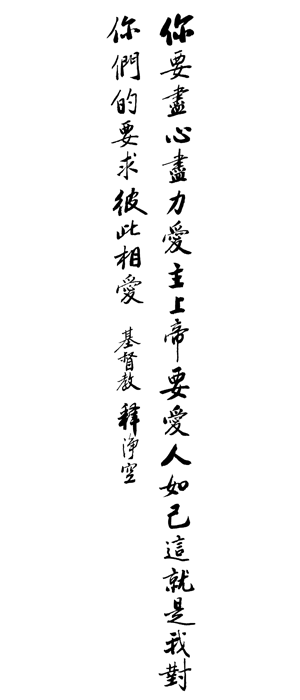 你要盡心盡力愛主上帝要愛人如己這就是我對
你們的要求彼此相愛 基督教 釋淨空